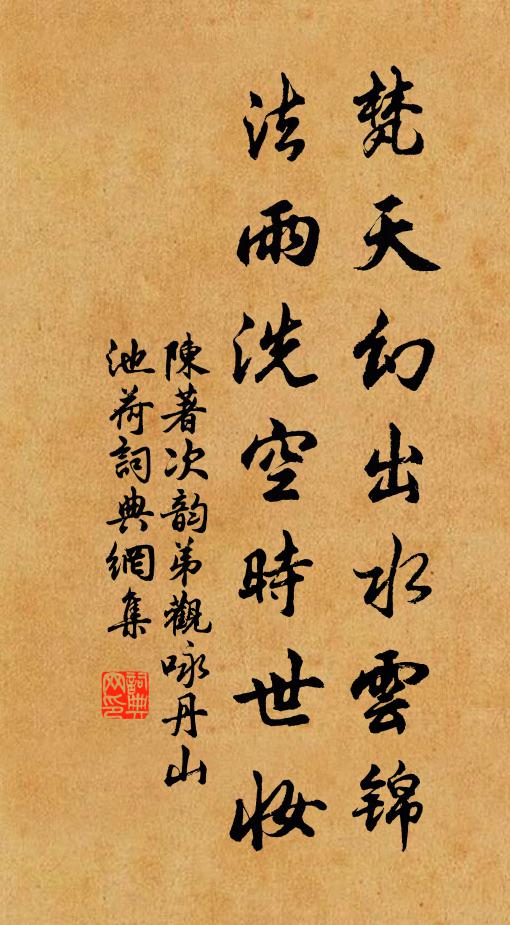 梵天幻出水雲錦
法雨洗空時世妝
陳著次韵弟觀咏丹山
池荷詞典網集
詞典网印